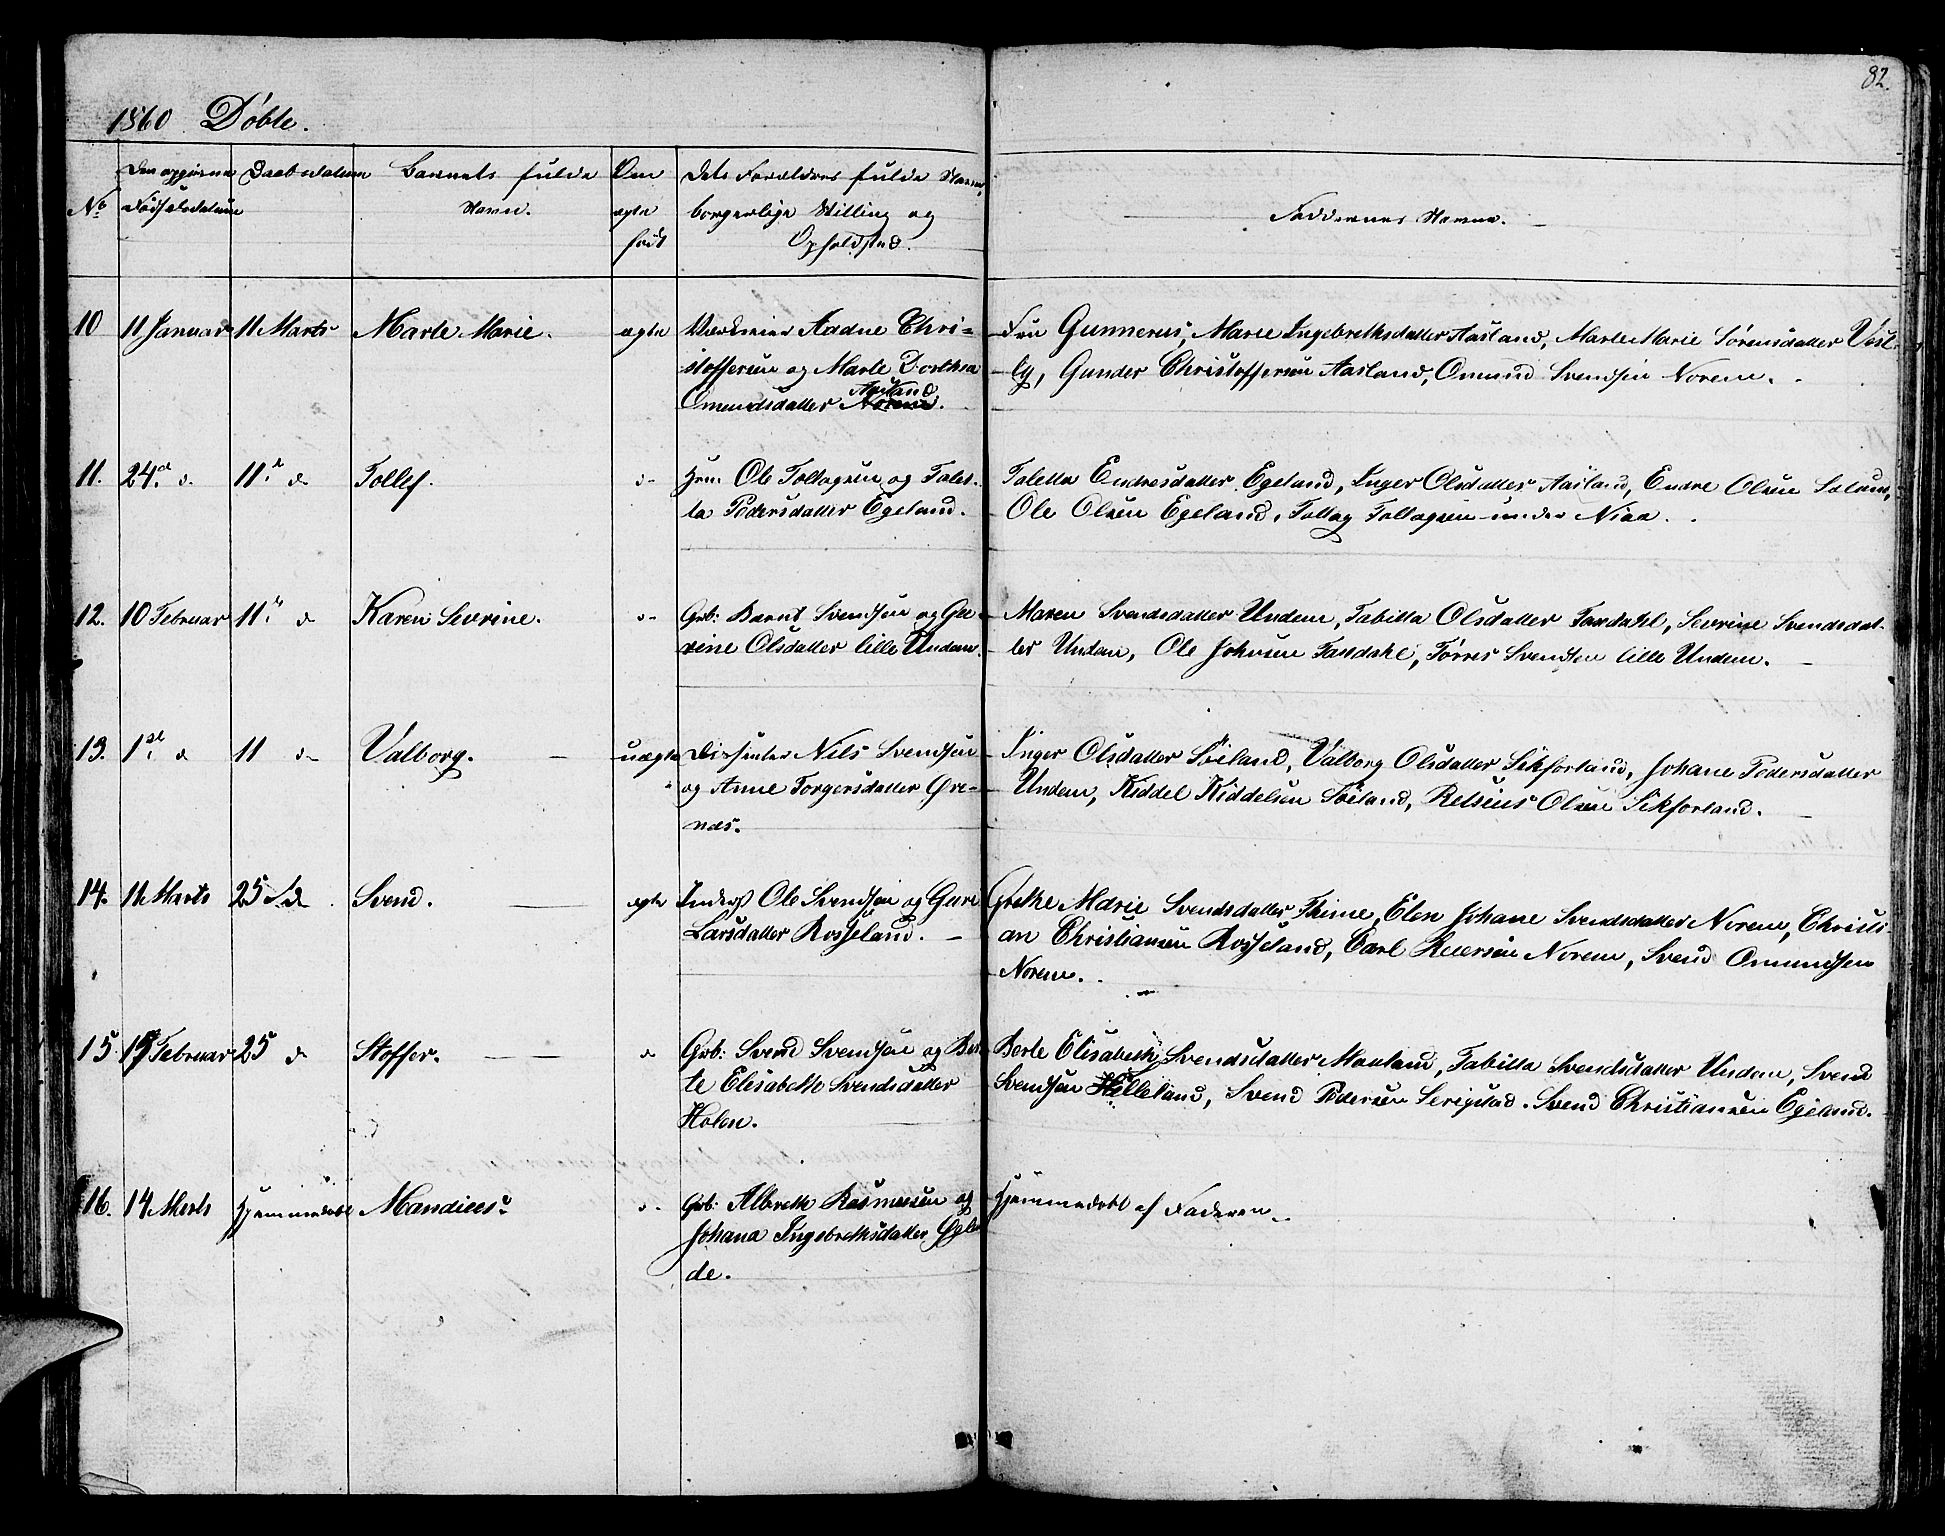 82.
1860 Døbte.
No
Den opgivne Fødselsdatum
Daabsdatum
Barnets fulde Navn.
Om ægte født
Dets Forældres fulde Navn, borgerlige Stilling og Opholdsted.
Faddernes Navne.
10 11 Januar 11 Marts Marte Marie. ægte Aadne Chri-
stoffersen og Marte Dorthea
Aasland
Omundsdatter Norem.
Fru Gunnerus, Marie Ingebrethsdatter Aasland, Marte Marie Sørensdatter Vest-
ly, Gunder Christoffersen Aasland, Omund Svendsen Norem.
11. 24de d. 11te d Tollef. d- Ole Tollagsen og Talet-
ta Pedersdatter Egeland.
Taletta Endresdatter Egeland, Inger Olsdatter Aasland, Endre Olsen
Ole Olsen Egeland, Tollag Tollagsen under Niaa.
12. 10 Februar 11te d Karen Severine. d- Grb: Bernt Svendsen og Gu-
rine Olsdatter lille Undem.
Maren Svendsdatter Undem, Tabitta Olsdatter Taxdahl, Severine Svendsdat-
ter Undem, Ole Johnsen Taxdahl, Tørres Svendsen lille Undem.
13. 1st d 11 d- Valborg. uægte Dissenter Nils Svendsen
og Anne Torgersdatter Øre-
næs.
Inger Olsdatter Søiland, Valborg Olsdatter Sikforland, Johane Pedersdatter
Undem, Kiddel Kiddelsen Søiland, Retsius Olsen Sikforland.
14. 11 Marts 25 d Svend. ægte Inderst Ole Svendsen og Guri
Larsdatter Rosseland.
Grethe Marie Svendsdatter Thime, Elen Johane Svendsdatter Norem, Christi-
an Christiansen Rosseland, Carl Petersen Norem, Svend Omundsen
Norem.
15. Februar 25 d Stoffer. d Grb: Svend Svendsen og Ber-
te Elisabeth Svendsdatter
Holen.
Berte Elisabeth Svendsdatter Mauland, Tabitta Svendsdatter Undem, Svend
Svendsen Helleland, Svend Pedersen Serigstad. Svend Christiansen Egeland.
16. 14 Marts Hjemmedøbt Mandius. d. Grb: Albreth Rasmussen og
Johana Ingebrethsdatter
de.
Hjemmedøbt af Faderen.